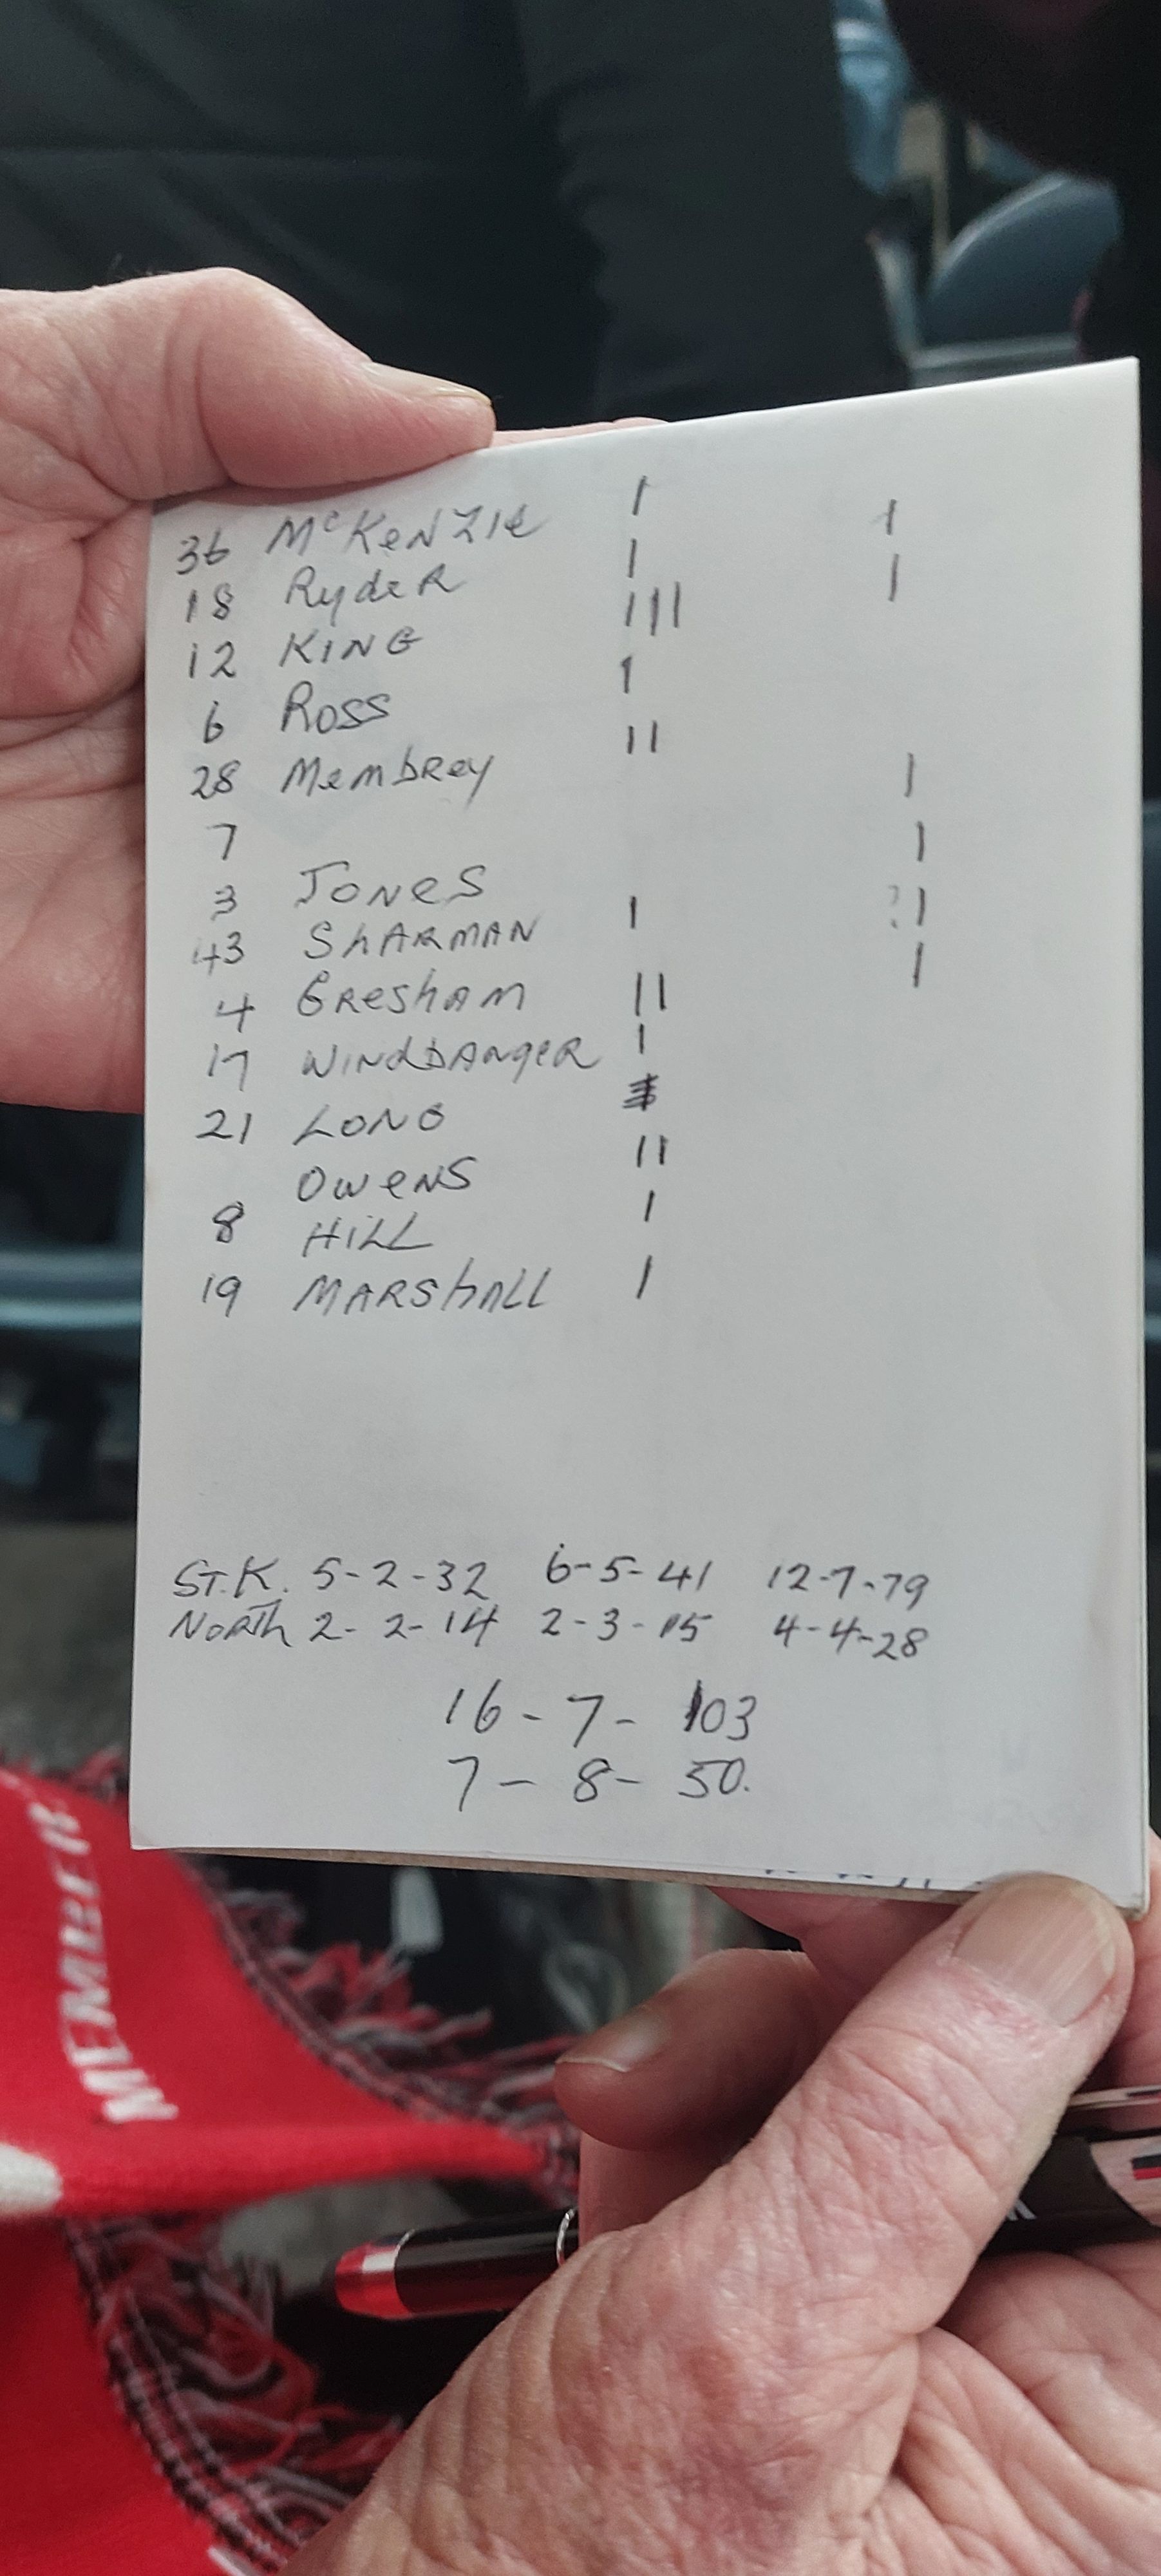 36 McKenzie I I
18 Ryder I I
12 KING III
6 Ross I
28 Membrey II
7 I
3 Jones I
43 SHARMAN I ? I
4 Gresham II I
17 Windbanger I
21 LONG
Owens II
8 HILL I
19 MARSHALL I
ST.K. 5-2-32 6-5-41 12-7-79
North 2-2-14 2-3-15 4-4-28
16-7-103
7-8-50.
MEMBER